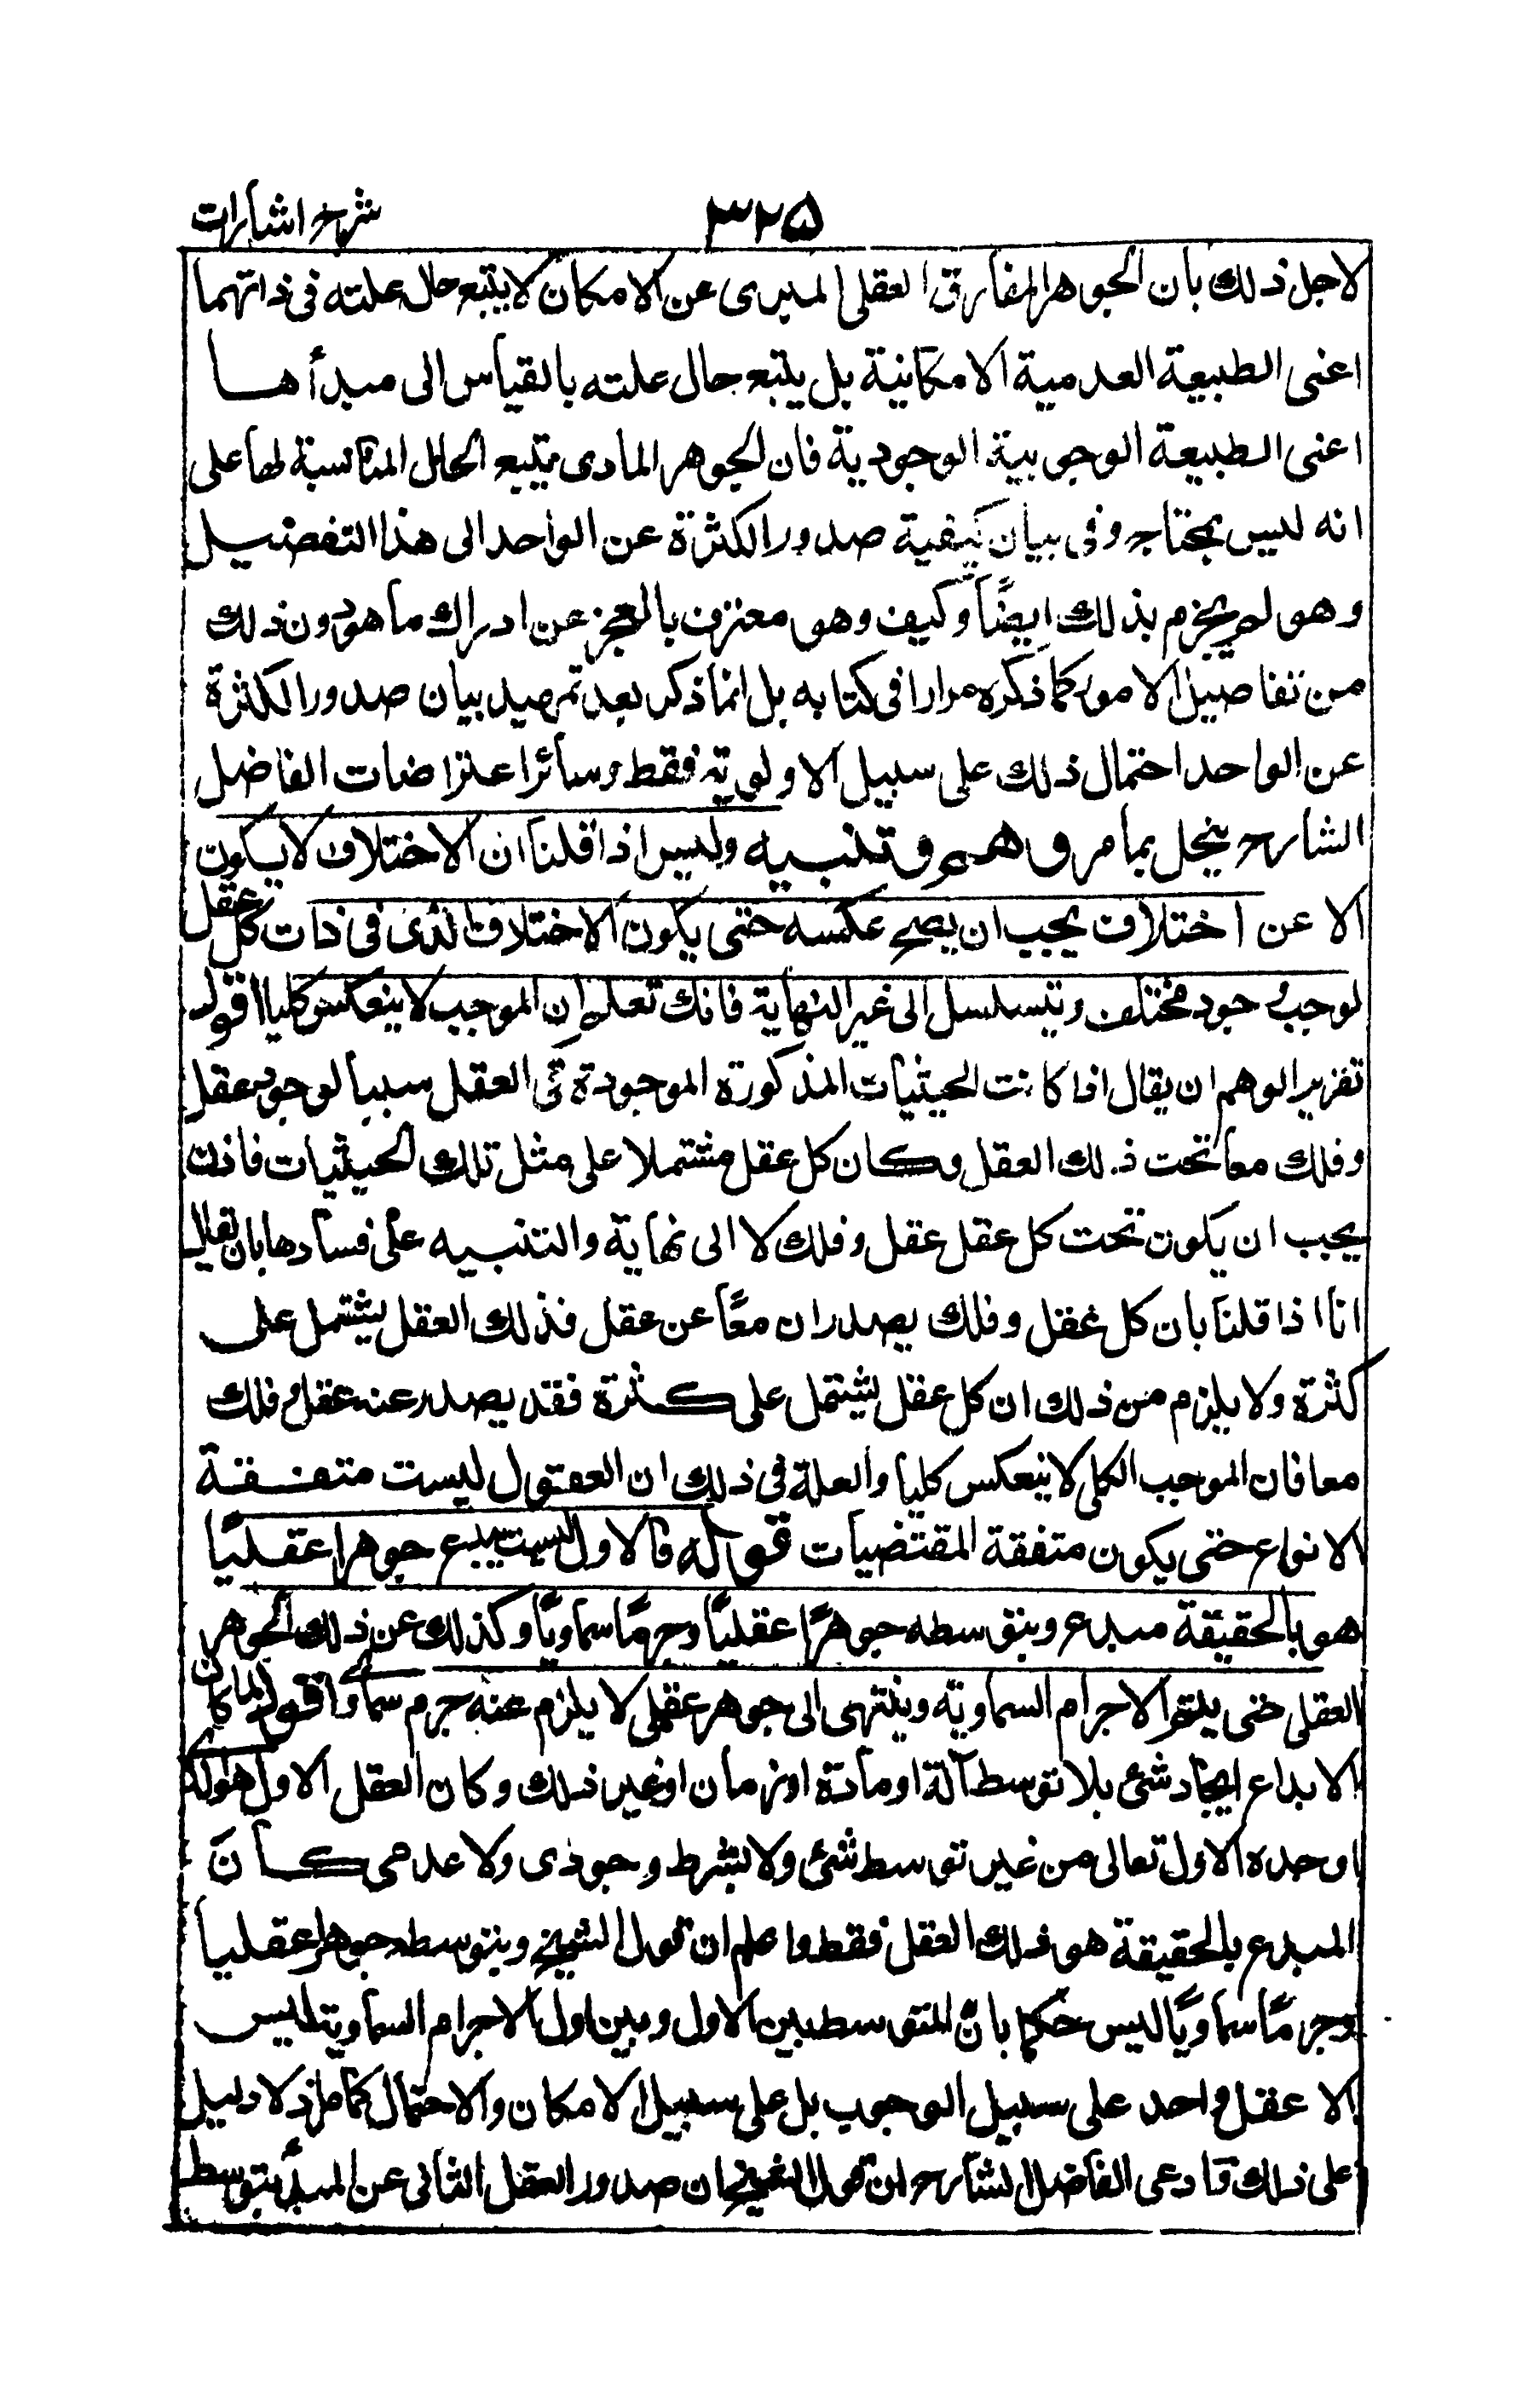 شرح اشارات ۳۲۵
لاجل ذلك بان الجوهر المفارق العقلى المبرى عن الامكان لا يتبع حال علته فى ذاتهما
اعنى الطبيعة العدمية الامكانية بل يتبع حال علته بالقياس الى مبدأها
اعنى الطبيعة الوجوبية الوجودية فان الجوهر المادى يتبع الحال المناسبة لها على
انه ليس بمحتاج وفى بيان كيفية صدور الكثرة عن الواحد الى هذا التفصيل
وهو لم يجزم بذلك ايضًا وكيف وهو معترف بالعجز عن ادراك ما هو دون ذلك
من تفاصيل الامور كما ذكره مرارا فى كتابه بل انما ذكر بعد تمهيد بيان صدور الكثرة
عن الواحد احتمال ذلك على سبيل الاولوية فقط وسائر اعتراضات الفاضل
الشارح ينحل بما مر وهم وتنبيه وليس اذا قلنا ان الاختلاف لا يكون
الا عن اختلاف يجب ان يصح عكسه حتى يكون الاختلاف الذى فى ذات كل عقل
لوجب وجود مختلف ويتسلسل الى غير النهاية فانك تعلم ان الموجب لا ينعكس كليا اقول
تقرير الوهم ان يقال اذا كانت الحيثيات المذكورة الموجودة فى العقل سببا لوجود عقل
وفلك معا تحت ذلك العقل وكان كل عقل مشتملا على مثل تلك الحيثيات فاذن
يجب ان يكون تحت كل عقل عقل وفلك لا الى نهاية والتنبيه على فسادها بان يقال
انا اذا قلنا بان كل عقل وفلك يصدران معًا عن عقل فذلك العقل يشتمل على
كثرة ولا يلزم من ذلك ان كل عقل يشتمل على كثرة فقد يصدر عنه عقل وفلك
معا فان الموجب الكلى لا ينعكس كليا والعلة فى ذلك ان العقول ليست متفقة
الانواع حتى يكون متفقة المقتضيات قوله فالاول يبدع جوهرا عقليًا
هو بالحقيقة مبدع وبتوسطه جوهرًا عقليًا وجرمًا سماويًا وكذلك عن ذلك الجوهر
العقلى حتى يتم الاجرام السماوية وينتهى الى جوهر عقلى لا يلزم عنه جرم سماوى اقول لما كان
الابداع ايجاد شئ بلا توسط آلة او مادة او زمان او غير ذلك وكان العقل الاول هو الذى
اوجده الاول تعالى من غير توسط شئ ولا بشرط وجودى ولا عدمى كان
المبدع بالحقيقة هو ذلك العقل فقط واعلم ان قول الشيخ وبتوسطه جوهرا عقليا
وجرمًا سماويًا ليس حكما بان المتوسط بين الاول وبين اول الاجرام السماوية ليس
الا عقل واحد على سبيل الوجوب بل على سبيل الامكان والاحتمال كما مر اذ لا دليل
على ذلك وادعى الفاضل الشارح ان قول الشيخ بان صدور العقل الثانى عن المبدأ بتوسط